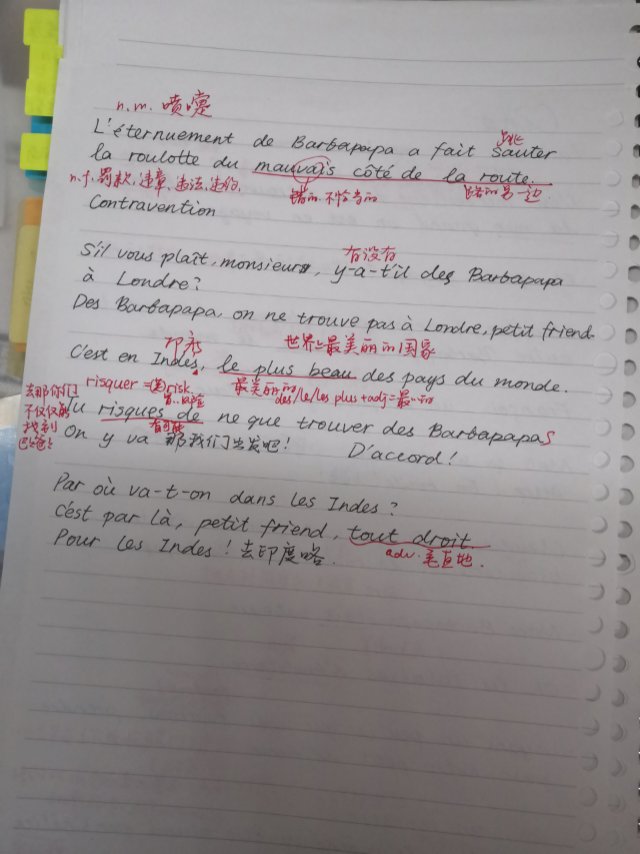 n.m. 喷嚏
L'éternuement de Barbapapa a fait sauter
跳
la roulotte du mauvais côté de la route.
n.f. 罚款, 违章, 违法, 违约,
错的. 不恰当的
错的另一边
Contravention
S'il vous plaît, monsieur, y-a-t'il des Barbapapa
有没有
à Londre?
Des Barbapapa, on ne trouve pas à Londre, petit friend.
印度
世界上最美丽的国家
C'est en Indes, le plus beau des pays du monde.
去那你们
不仅仅能
找到
巴巴爸爸
risquer = risk
最美丽的
des/le/les plus + adj = 最…的
Tu risques de ne que trouver des Barbapapas
有可能
On y va 那我们出发吧! D'accord!
Par où va-t-on dans les Indes?
C'est par là, petit friend, tout droit
adv. 笔直地.
Pour les Indes! 去印度咯.